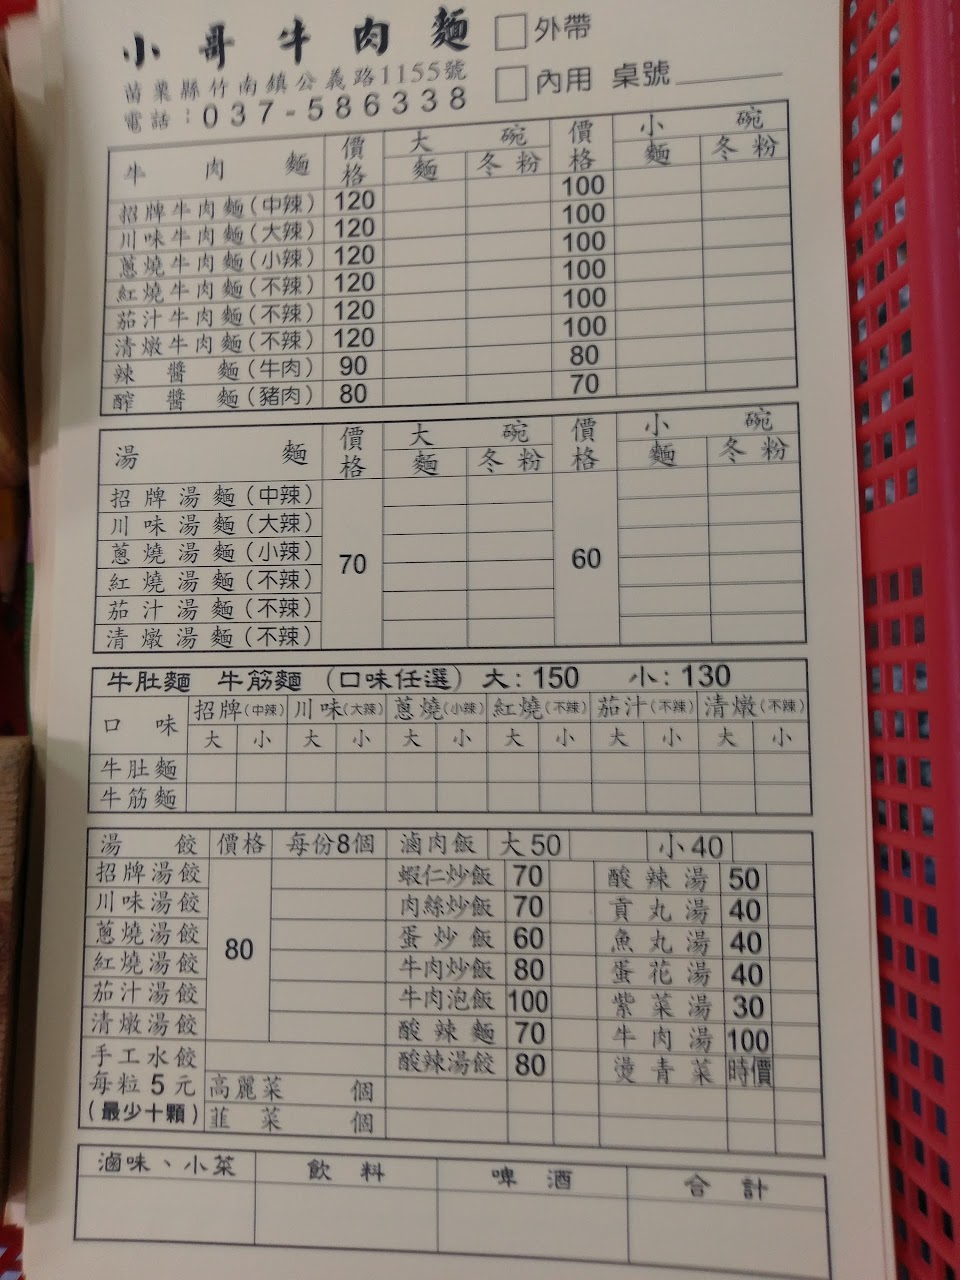 小哥牛肉麵 □外帶
苗栗縣竹南鎮公義路1155號
電話：037-586338 □內用 桌號
牛肉麵 價格 大碗 價格 小碗
麵 冬粉 麵 冬粉
招牌牛肉麵(中辣) 120 100
川味牛肉麵(大辣) 120 100
蔥燒牛肉麵(小辣) 120 100
紅燒牛肉麵(不辣) 120 100
茄汁牛肉麵(不辣) 120 100
清燉牛肉麵(不辣) 120 100
辣醬麵(牛肉) 90 80
醡醬麵(豬肉) 80 70
湯麵 價格 大碗 價格 小碗
麵 冬粉 麵 冬粉
招牌湯麵(中辣)
川味湯麵(大辣)
蔥燒湯麵(小辣) 70 60
紅燒湯麵(不辣)
茄汁湯麵(不辣)
清燉湯麵(不辣)
牛肚麵 牛筋麵 (口味任選) 大:150 小:130
口味 招牌(中辣) 川味(大辣) 蔥燒(小辣) 紅燒(不辣) 茄汁(不辣) 清燉(不辣)
大 小 大 小 大 小 大 小 大 小 大 小
牛肚麵
牛筋麵
湯餃 價格 每份8個 滷肉飯 大50 小40
招牌湯餃 蝦仁炒飯 70 酸辣湯 50
川味湯餃 肉絲炒飯 70 貢丸湯 40
蔥燒湯餃 80 蛋炒飯 60 魚丸湯 40
紅燒湯餃 牛肉炒飯 80 蛋花湯 40
茄汁湯餃 牛肉泡飯 100 紫菜湯 30
清燉湯餃 酸辣麵 70 牛肉湯 100
手工水餃 酸辣湯餃 80 燙青菜 時價
每粒5元 高麗菜 個
(最少十顆) 韮菜 個
滷味、小菜 飲料 啤酒 合計